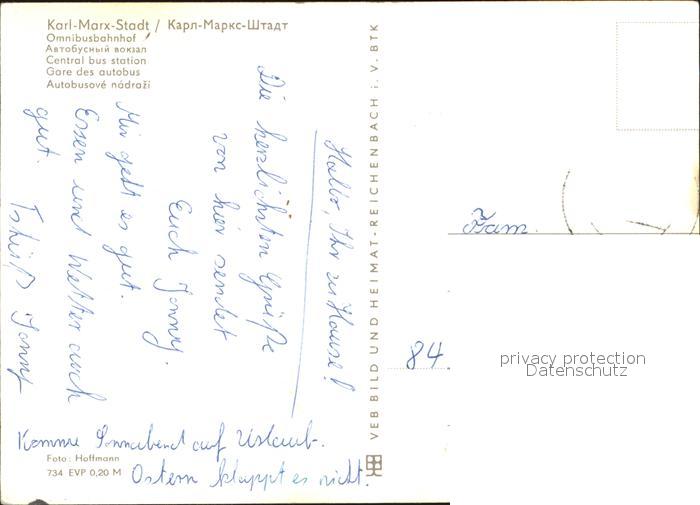 Karl-Marx-Stadt / Карл-Маркс-Штадт
Omnibusbahnhof
Автобусный вокзал
Central bus station
Gare des autobus
Autobusové nádraží
Hallo, Ihr zu Hause!
Die herzlichsten Grüße
von hier sendet
Euch Jonny.
Mir geht es gut.
Essen und Wetter auch
gut. Tshüß Jonny
Komme Sonnabend auf Urlaub.
Ostern klappt es nicht.
Foto: Hoffmann
734 EVP 0,20 M
VEB BILD UND HEIMAT · REICHENBACH i. V. BTK
Fam.
84
privacy protection
Datenschutz